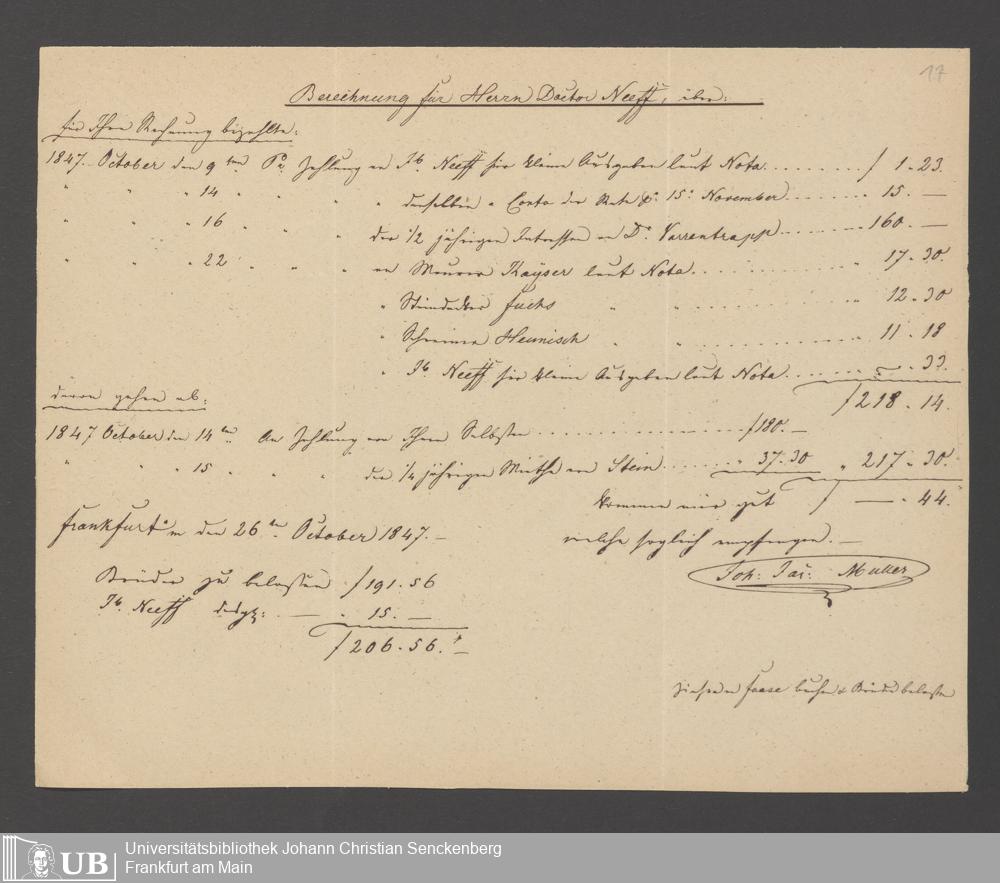 17
Berechnung für Herrn Doctor Neeff, über:
für Ihre Rechnung bezahlte:
1847. October den 9ten Pr Zahlung an Jb. Neeff für kleine Ausgaben laut Nota f 1.23.
" " " 14 " " " " derselben a Conto der Rate 15n November " 15. —
" " " 16 " " " der 1/2 jährigen Interessen an Dr. Varrentrapp " 160. —
" " " 22 " " " an Maurer Kayser laut Nota " 17.30.
" Steindecker Fuchs " " " 12.30
" Schreiner Heinisch " " " 11.18
" Jb. Neeff für kleine Ausgaben laut Nota " —.33.
f 218.14.
davon gehen ab:
1847 October den 14ten An Zahlung von Ihnen Selbsten f 180.—
" " " 15 " " " der 1/4 jährigen Miethe von Stein " 37.30 " 217.30.
kommen mir gut f —.44.
Frankfurt a/m den 26ten October 1847.—
welche sogleich empfangen.—
Joh: Jac: Müller
Brüder zu belasten f 191.56
Jb. Neeff desgl: — " 15. —
f 206.56.
UB
Universitätsbibliothek Johann Christian Senckenberg
Frankfurt am Main